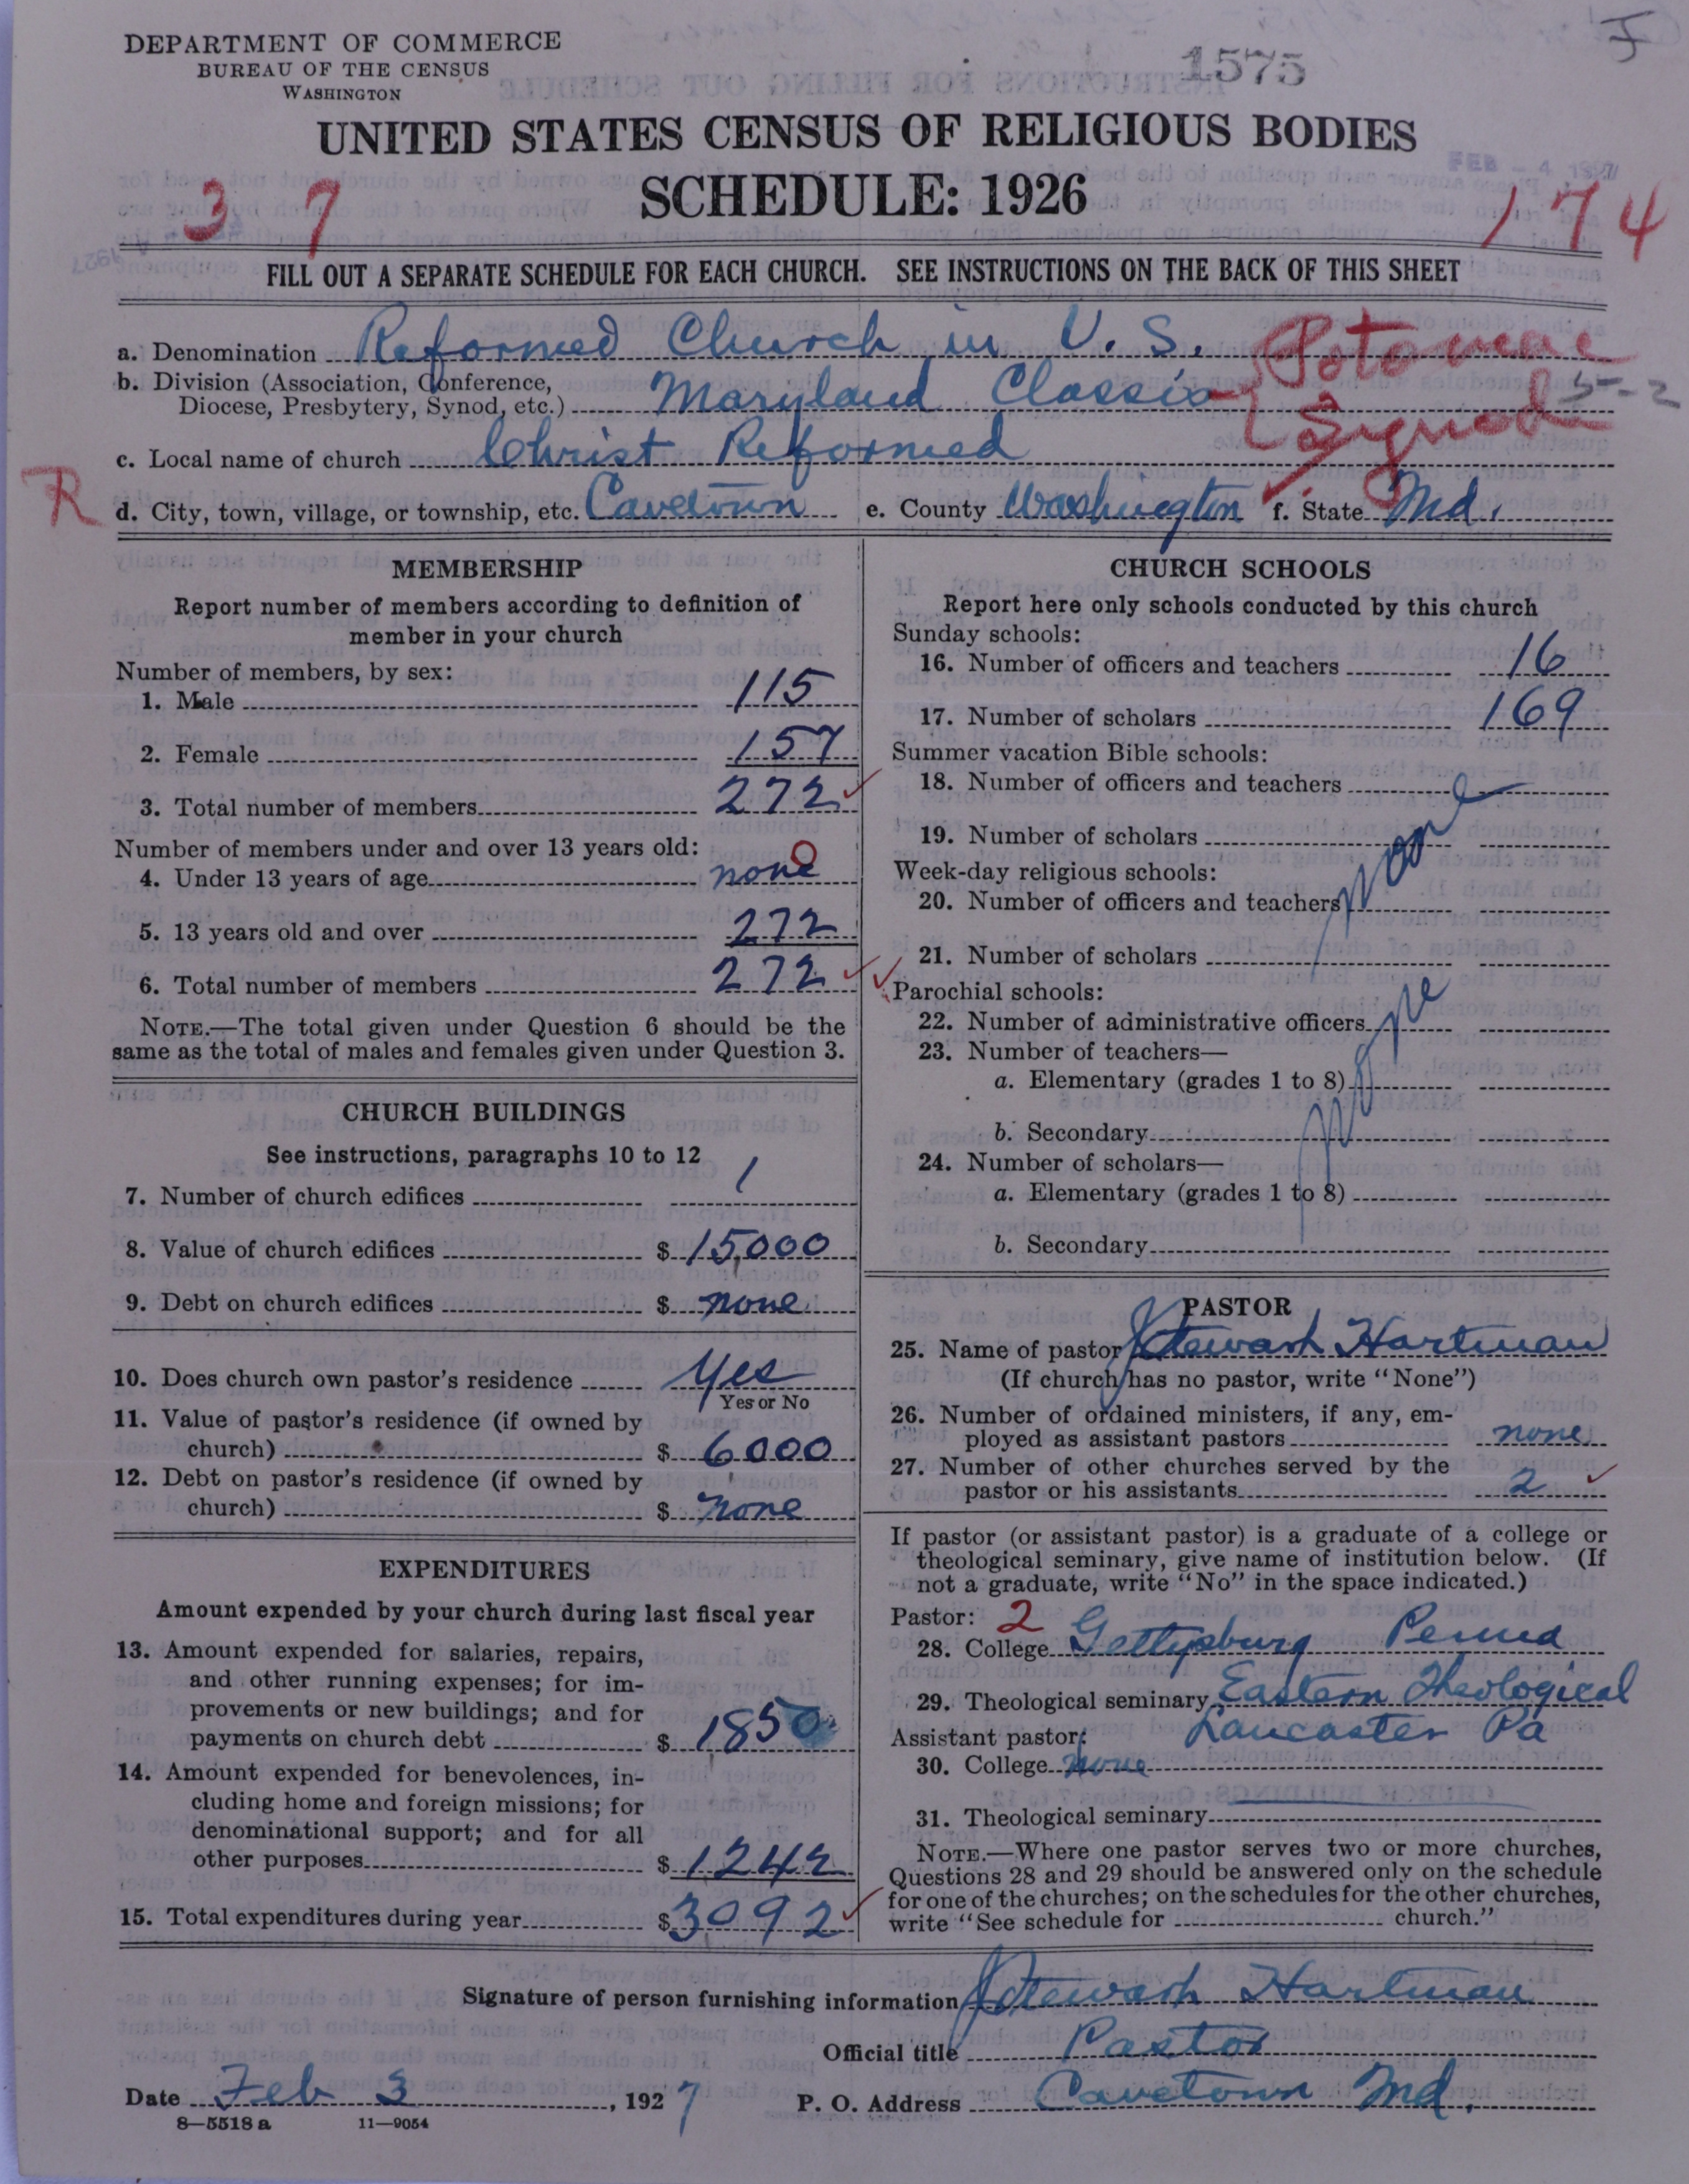 DEPARTMENT OF COMMERCE
BUREAU OF THE CENSUS
WASHINGTON
1575
UNITED STATES CENSUS OF RELIGIOUS BODIES
FEB - 4 1927
SCHEDULE: 1926
3 7
174
FILL OUT A SEPARATE SCHEDULE FOR EACH CHURCH. SEE INSTRUCTIONS ON THE BACK OF THIS SHEET
a. Denomination Reformed Church in U. S.
Potomac
b. Division (Association, Conference, Diocese, Presbytery, Synod, etc.) Maryland Classis
Synod
5-2
c. Local name of church Christ Reformed
R
d. City, town, village, or township, etc. Cavetown e. County Washington f. State Md.
MEMBERSHIP
Report number of members according to definition of
member in your church
Number of members, by sex:
1. Male 115
2. Female 157
3. Total number of members 272
Number of members under and over 13 years old:
4. Under 13 years of age none 0
5. 13 years old and over 272
6. Total number of members 272
NOTE.—The total given under Question 6 should be the
same as the total of males and females given under Question 3.
CHURCH BUILDINGS
See instructions, paragraphs 10 to 12
7. Number of church edifices 1
8. Value of church edifices $ 15,000
9. Debt on church edifices $ none
10. Does church own pastor's residence Yes
Yes or No
11. Value of pastor's residence (if owned by
church) $ 6000
12. Debt on pastor's residence (if owned by
church) $ none
EXPENDITURES
Amount expended by your church during last fiscal year
13. Amount expended for salaries, repairs,
and other running expenses; for im-
provements or new buildings; and for
payments on church debt $ 1850
14. Amount expended for benevolences, in-
cluding home and foreign missions; for
denominational support; and for all
other purposes $ 1242
15. Total expenditures during year $ 3092
CHURCH SCHOOLS
Report here only schools conducted by this church
Sunday schools:
16. Number of officers and teachers 16
17. Number of scholars 169
Summer vacation Bible schools:
18. Number of officers and teachers
19. Number of scholars
none
Week-day religious schools:
20. Number of officers and teachers
21. Number of scholars
Parochial schools:
22. Number of administrative officers
none
23. Number of teachers—
a. Elementary (grades 1 to 8)
b. Secondary
24. Number of scholars—
a. Elementary (grades 1 to 8)
b. Secondary
PASTOR
25. Name of pastor J Stewart Hartman
(If church has no pastor, write "None")
26. Number of ordained ministers, if any, em-
ployed as assistant pastors none
27. Number of other churches served by the
pastor or his assistants 2
If pastor (or assistant pastor) is a graduate of a college or
theological seminary, give name of institution below. (If
not a graduate, write "No" in the space indicated.)
Pastor: 2
28. College Gettysburg Penna
29. Theological seminary Eastern Theological
Assistant pastor: Lancaster Pa
30. College None
31. Theological seminary
NOTE.—Where one pastor serves two or more churches,
Questions 28 and 29 should be answered only on the schedule
for one of the churches; on the schedules for the other churches,
write "See schedule for church."
Signature of person furnishing information J Stewart Hartman
Official title Pastor
Date Feb 3, 1927 P. O. Address Cavetown Md.
8—5518 a 11—9054